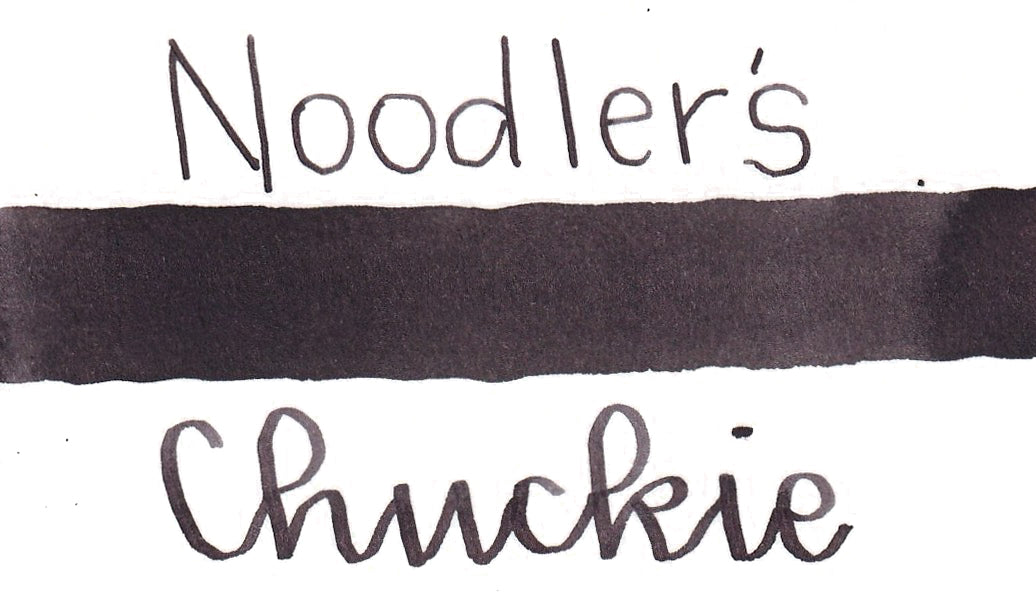 Noodler's
Chuckie